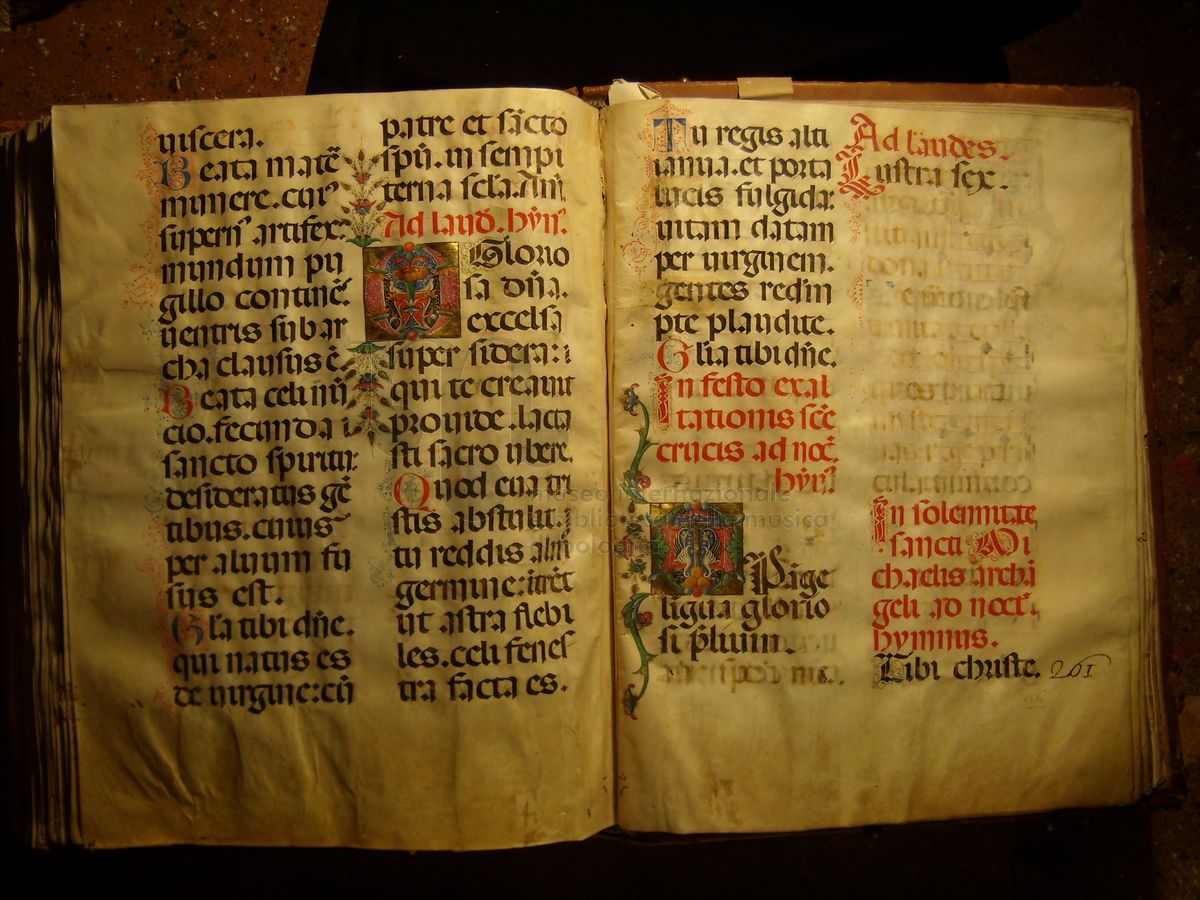 uiscera.
Beata matē
munere. cui9
supern9 artifex:
mundum pu
gillo continē͛.
uentris sub ar
cha clausus ē.
Beata celi nū
cio. fecunda i
sancto spiritu:
desideratus gē
tibus. cuius
per aluum fu
sus est.
Gl̄a tibi dn̄e.
qui natus es
de uirgine: cū
patre et sācto
spū. in sempi
terna scl̄a. Am̄.
Ad laud̄. hyn̄9.
O Glorio
sa dn̄a.
excelsa
super sidera: i
qui te creauit
prouide. lacta
sti sacro ubere.
Quod eua tri
stis abstulit.
tu reddis almo
germine: itrēt
ut astra flebi
les. celi fenes
tra facta es.
Tu regis alti
ianua. et porta
lucis fulgida:
uitam datam
per uirginem.
gentes redem
pte plaudite.
Gl̄ia tibi dn̄e.
In festo exal
tationis scē
crucis ad noct̄.
hyn̄9.
Pāge
ligua glorio
si p̄lium.
Ad laudes.
Lustra sex.
In solennitate
sancti Mi
chaelis archā
geli ad noct̄.
hymnus.
Tibi christe. 261
museo internazionale
biblioteca della musica
bologna